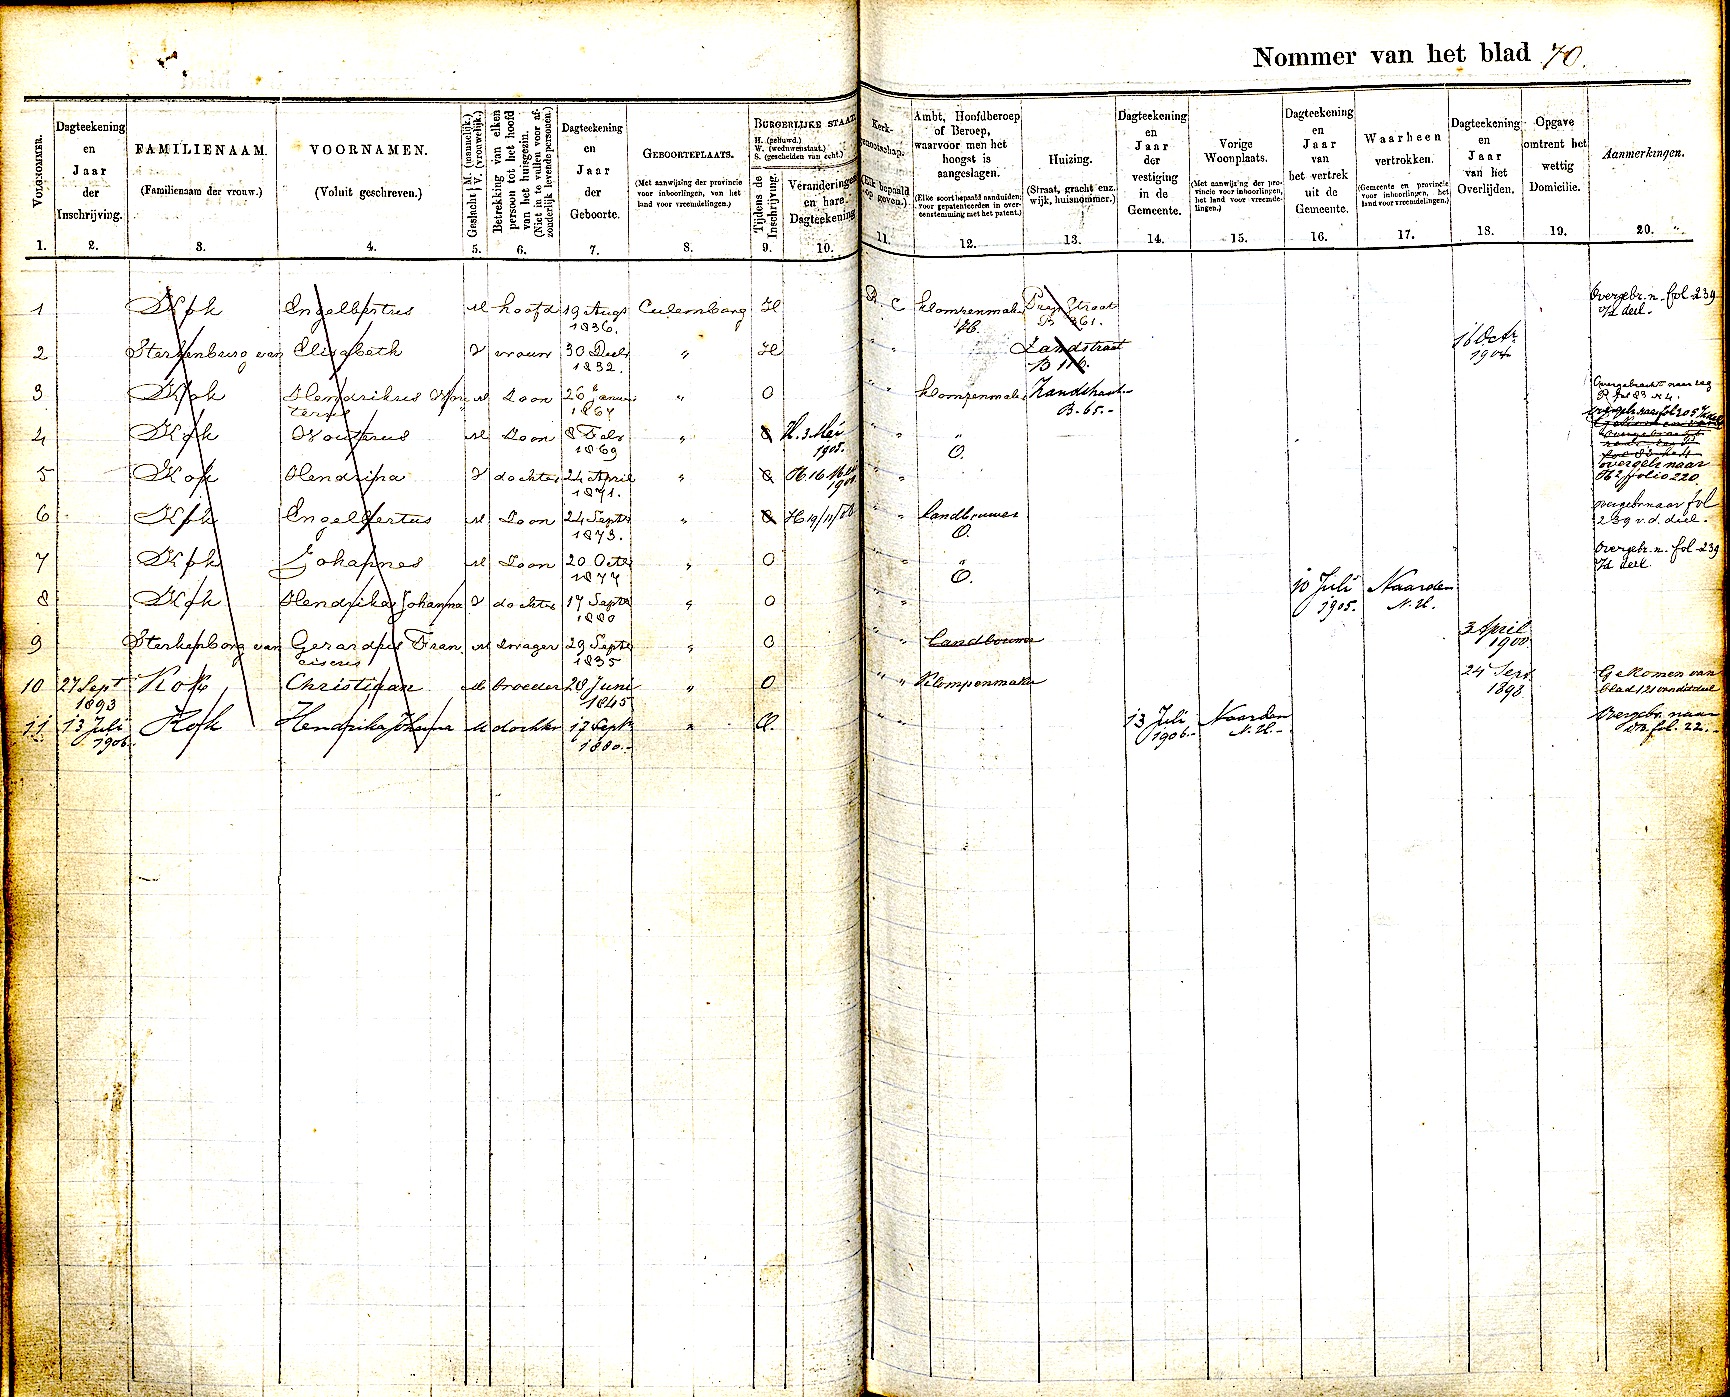 Nommer van het blad 70.
VOLGNOMMER.
Dagteekening
en
Jaar
der
Inschrijving.
FAMILIENAAM.
(Familienaam der vrouw.)
VOORNAMEN.
(Voluit geschreven.)
Geslacht M. (mannelijk.)
V. (vrouwelijk.)
Betrekking van elken
persoon tot het hoofd
van het huisgezin.
(Niet in te vullen voor af-
zonderlijk levende personen.)
Dagteekening
en
Jaar
der
Geboorte.
GEBOORTEPLAATS.
(Met aanwijzing der provincie
voor inboorlingen, van het
land voor vreemdelingen.)
BURGERLIJKE STAAT.
H. (gehuwd.)
W. (weduwenstaat.)
S. (gescheiden van echt.)
Tijdens de
Inschrijving.
Veranderingen
en hare
Dagteekening
Kerk-
genootschap.
(Elk bepaald
op geven.)
Ambt, Hoofdberoep
of Beroep,
waarvoor men het
hoogst is
aangeslagen.
(Elke soort bepaald aanduiden;
voor gepatenteerden in over-
eenstemming met het patent.)
Huizing.
(Straat, gracht enz.
wijk, huisnommer.)
Dagteekening
en
Jaar
der
vestiging
in de
Gemeente.
Vorige
Woonplaats.
(Met aanwijzing der pro-
vincie voor inboorlingen,
het land voor vreemde-
lingen.)
Dagteekening
en
Jaar
van
het vertrek
uit de
Gemeente.
Waarheen
vertrokken.
(Gemeente en provincie
voor inboorlingen, het
land voor vreemdelingen.)
Dagteekening
en
Jaar
van het
Overlijden.
Opgave
omtrent het
wettig
Domicilie.
Aanmerkingen.
1. 2. 3. 4. 5. 6. 7. 8. 9. 10. 11. 12. 13. 14. 15. 16. 17. 18. 19. 20.
1 Kok Engelbertus M hoofd 19 Augs Culemborg H R. C klompenmaker Overgebr. n. fol 239
1836. B 361. v/d deel.
2 Sterkenburg van Elisabeth V vrouw 30 Decb " H " " Zandstraat 16 Octr
1832. B 116. 1904
3 Kok Hendrikus M Zoon 26 Januari " O " " klompenmaker Zandstraat
1867 B. 65.-
4 Kok Wouterus M Zoon 8 Febr " O H. 3 Mei " " "
1869 1905. O.
5 Kok Hendrina V dochter 24 April " O H. 16 " " overgebr naar
1871. folio 220.
6 Kok Engelbertus M Zoon 24 Septr " O H 19/11/ " " Landbouwer overgebr naar fol
1873. O. 239 v. d. deel.
7 Kok Johannes M Zoon 20 Octr " O " " " Overgebr. n. fol 239
1877 O. v/d deel
8 Kok Hendrika Johanna V dochter 17 Septr " O " " 10 Juli Naarden
1880 1905. N. H.
9 Sterkenborg van Gerardus Fran M Zwager 29 Septr " O " " Landbouwer 3 April
ciscus 1835 1900
10 27 Sept Kok Christiaan M broeder 28 Juni " O " " Klompenmaker 24 Gekomen van
1893 1845 1898 blad 121 van dit deel
11 13 Juli Kok Hendrika Johanna M dochter 17 Sept " O. " " 13 Juli Naarden Overgebr. naar
1906. 1880.- 1906.- N. H.- fol. 22.-